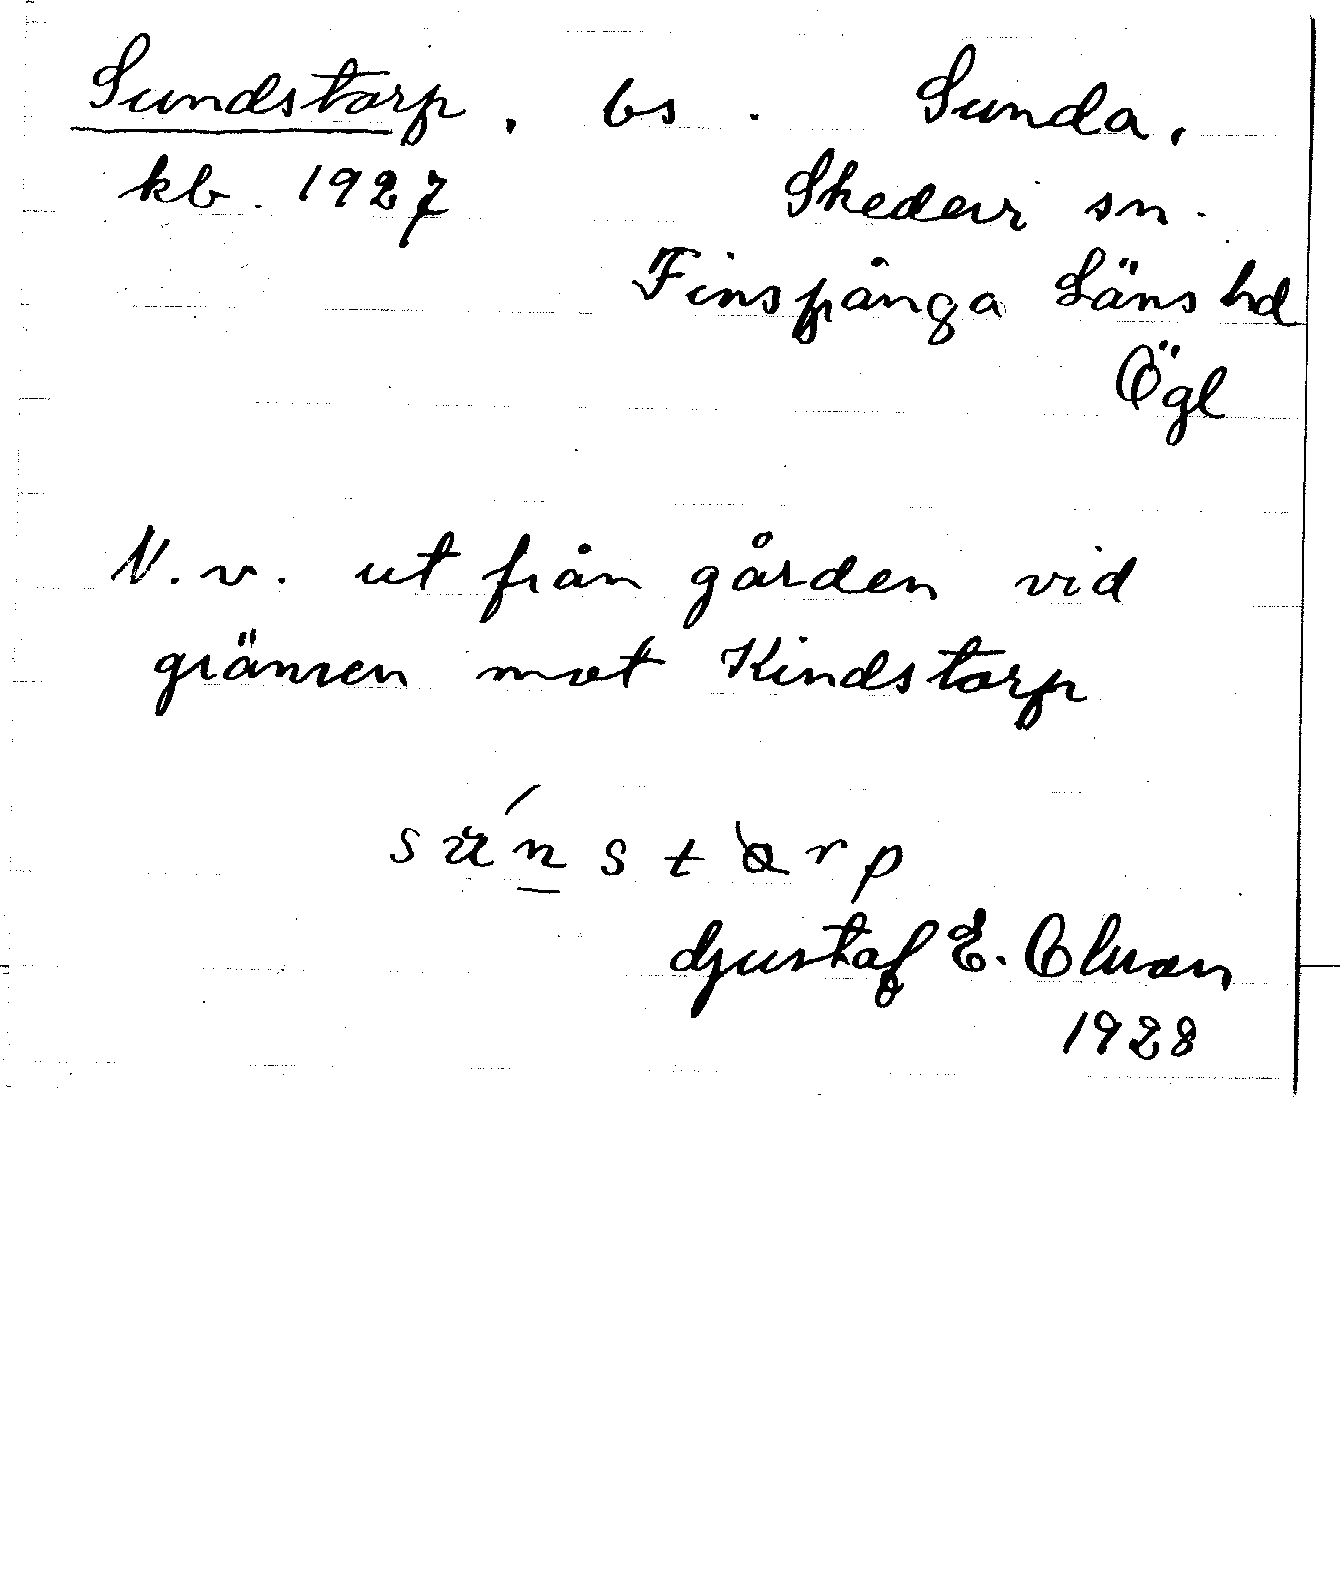 Sundstorp, bs. Sunda,
kb. 1927 Skedevi sn.
Finspånga Läns hd
Ögl
N. v. ut från gården vid
gränsen mot Kindstorp
Gustaf E. Olsson
1928